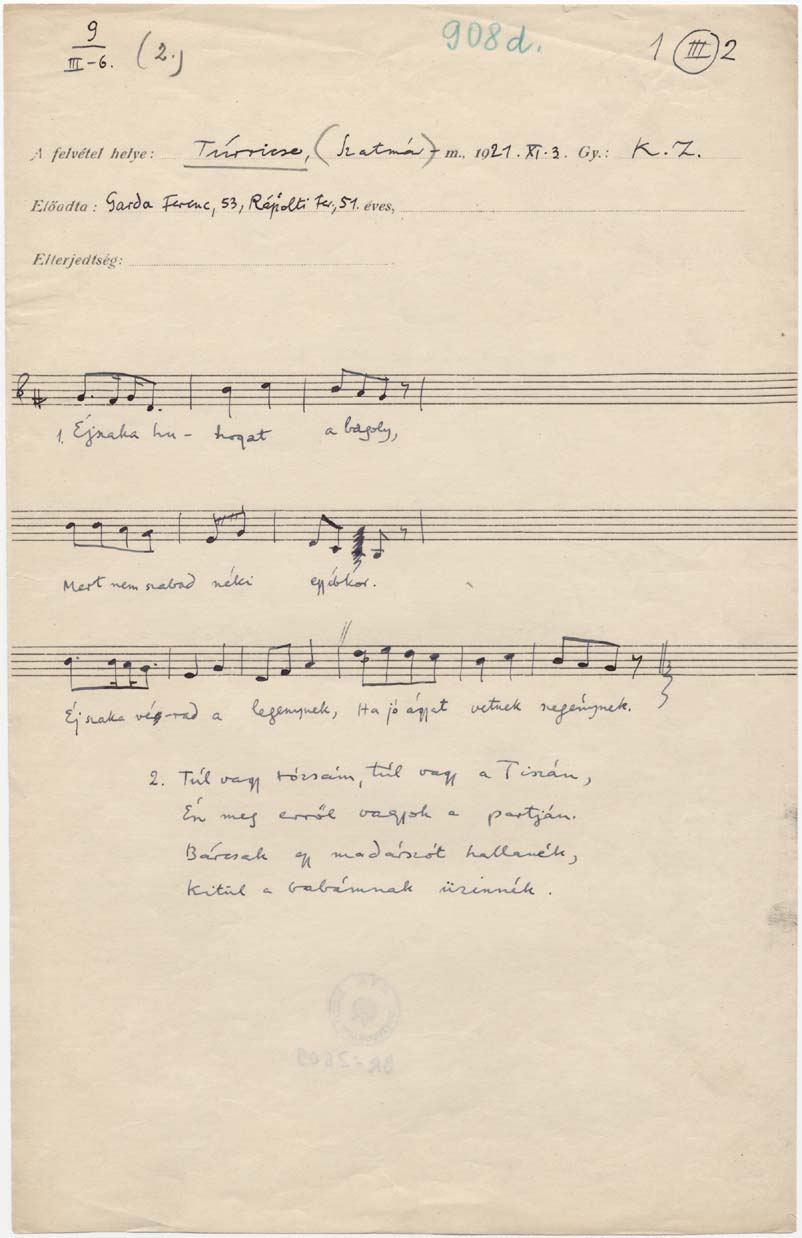 9
III-6. (2.) 908d. 1 III 2
A felvétel helye: Túrricse, (Szatmár) m., 1921. XI. 3. Gy.: K. Z.
Előadta: Garda Ferenc, 53, Répolti Fer., 51. éves,
Elterjedtség:
1. Éjszaka hu- hogat a bagoly,
Mert nem szabad néki
Éjszaka a legénynek, Ha jó ágyat vetnek szegénynek.
2. Túl vagy rózsám, túl vagy a Tiszán,
Én meg erről vagyok a partján.
Bárcsak egy madárszót hallanék,
Kitül a babámnak üzennék.
BR-2609